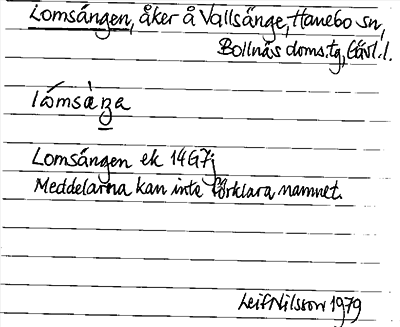 Lomsängen, åker å Vallsänge, Hanebo sn,
Bollnäs doms.tg, Gävl.l.
lómsàŋa
Lomsängen ek 14G7j
Meddelarna kan inte förklara namnet.
Leif Nilsson 1979